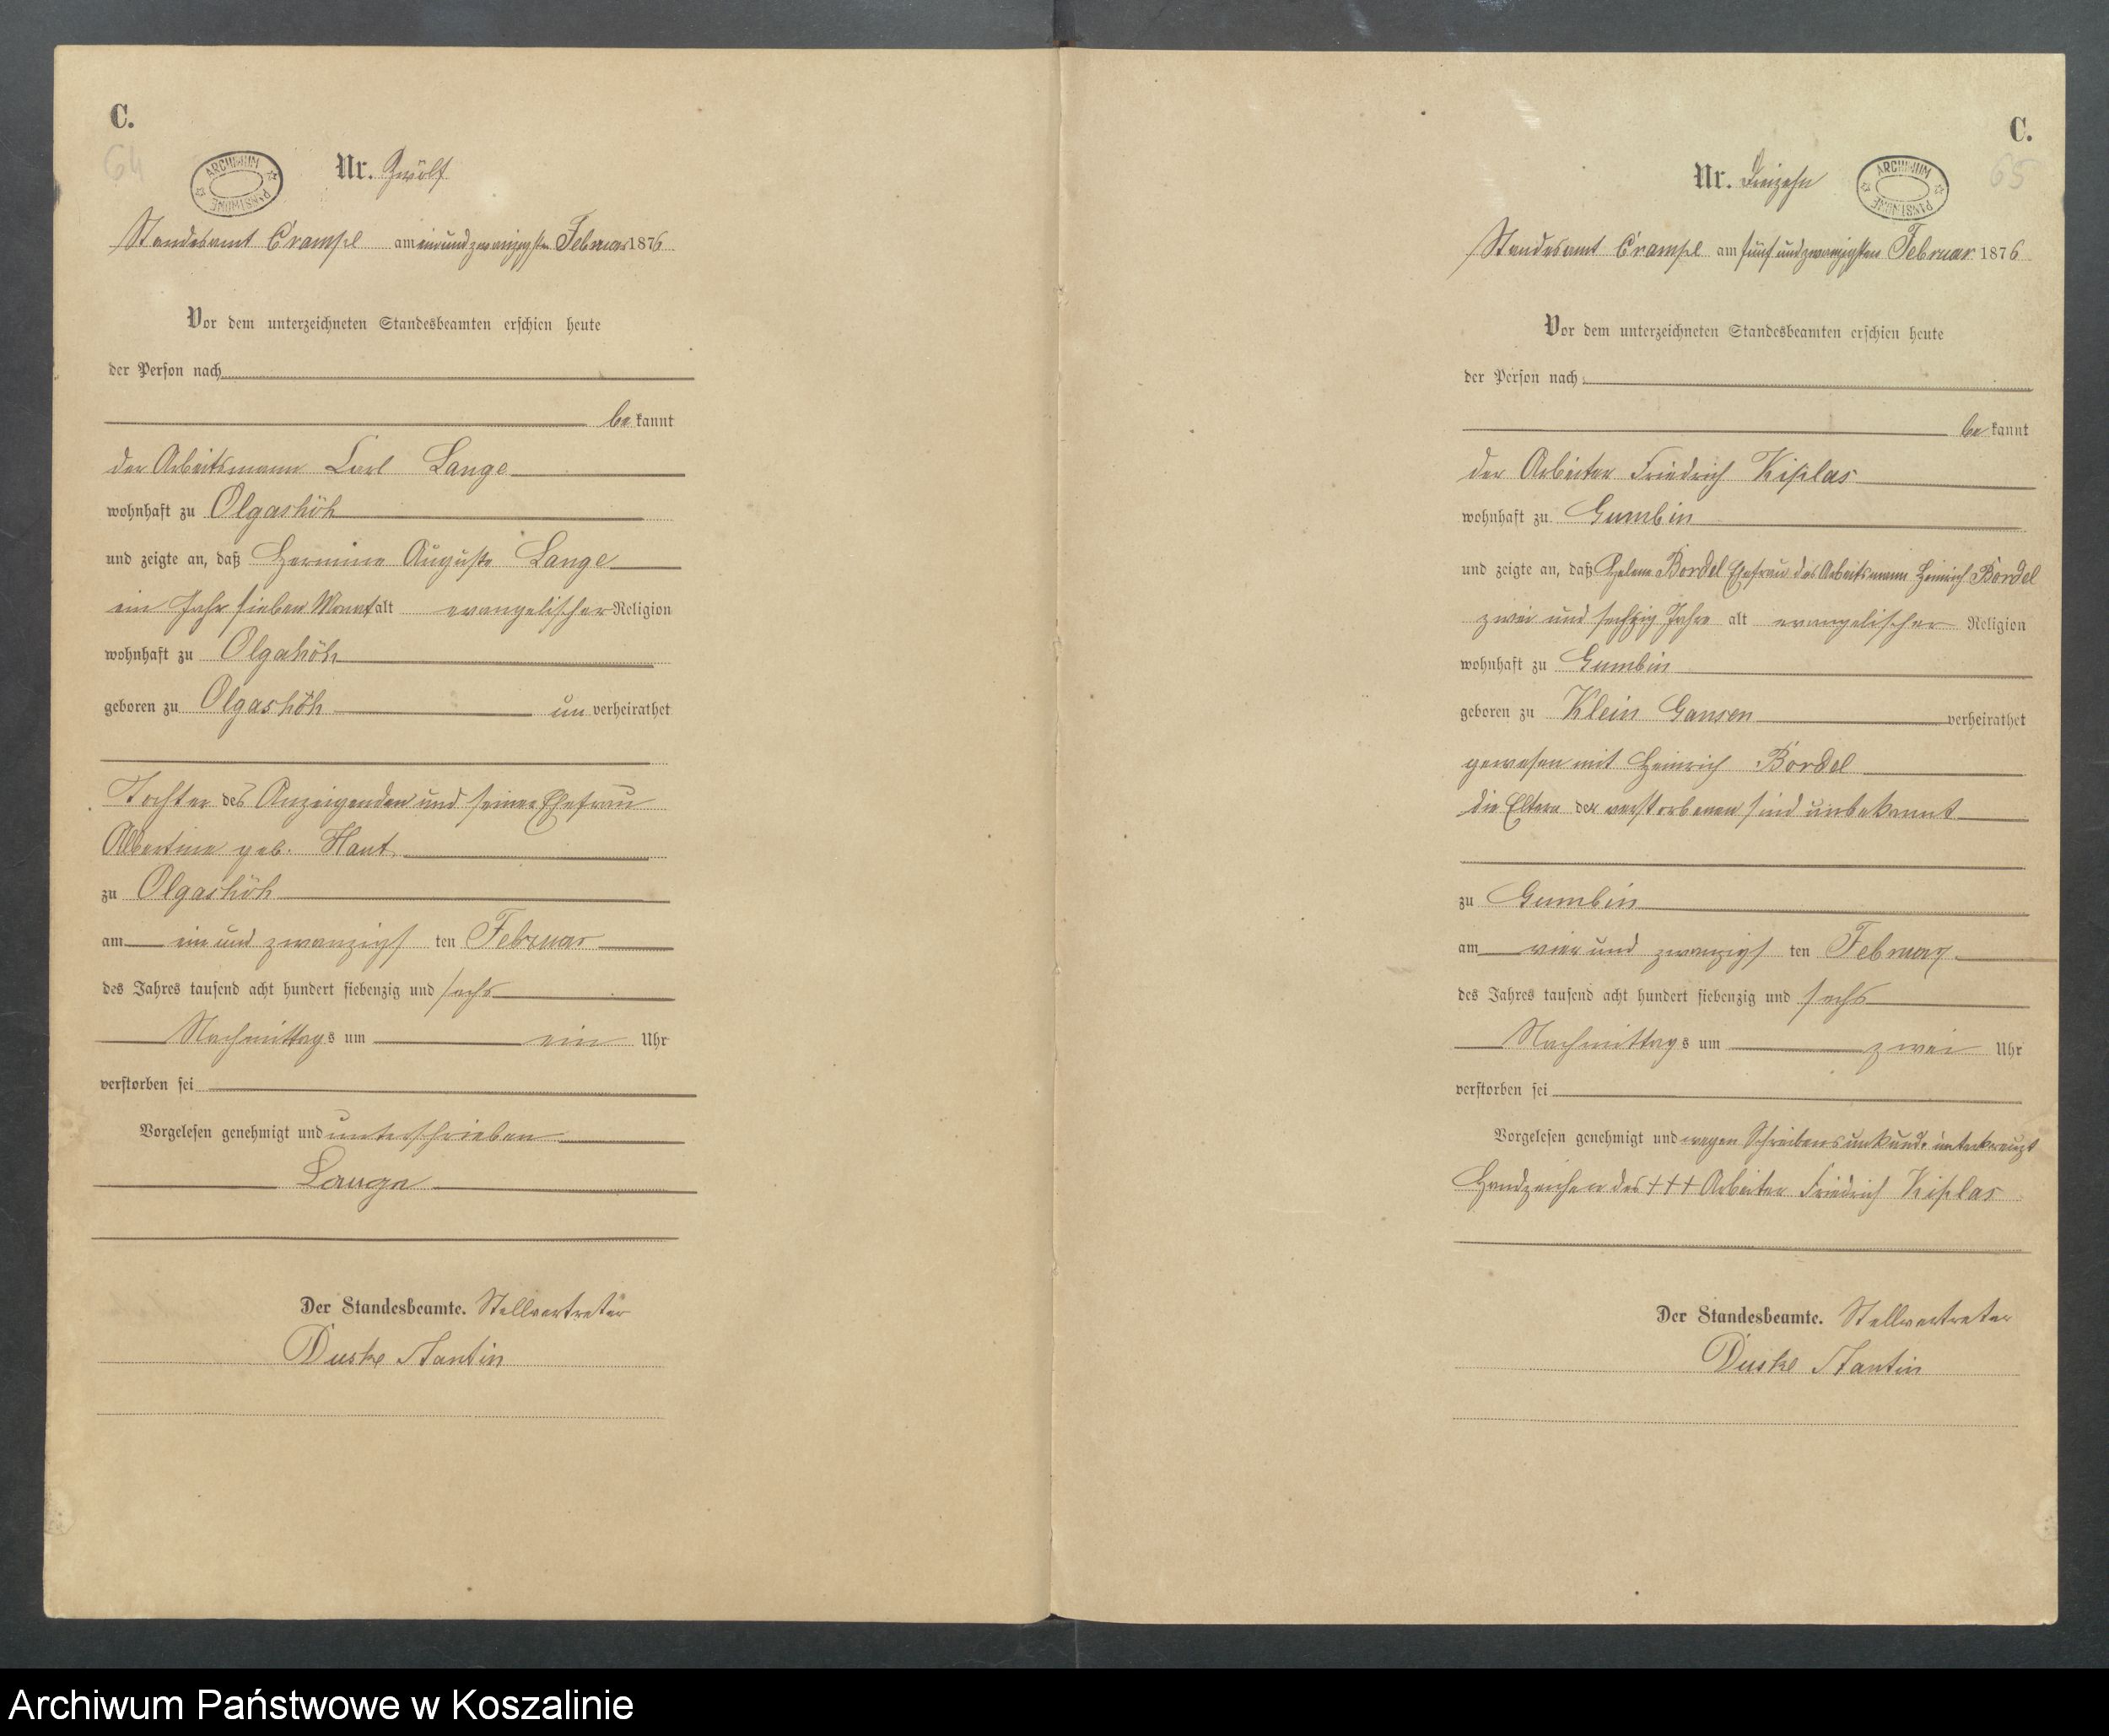 C.
64
ARCHIWUM PAŃSTWOWE
Nr. Zwölf
Standesamt Crampe am einundzwanzigsten Februar 1876
Vor dem unterzeichneten Standesbeamten erschien heute
der Person nach
bekannt
der Arbeitsmann Carl Lange
wohnhaft zu Olgashöh
und zeigte an, daß Hermine Auguste Lange
ein Jahr sieben Monat alt evangelischer Religion
wohnhaft zu Olgahöh
geboren zu Olgashöh unverheirathet
Tochter des Anzeigenden und seiner Ehefrau
Albertine geb. Hant
zu Olgashöh
am ein und zwanzigsten Februar
des Jahres tausend acht hundert siebenzig und sechs
Nachmittags um ein Uhr
verstorben sei
Vorgelesen genehmigt und unterschrieben
Lange
Der Standesbeamte. Stellvertreter
Duske Stantin
C.
65
ARCHIWUM PAŃSTWOWE
Nr. Dreizehn
Standesamt Crampe am fünfundzwanzigsten Februar 1876
Vor dem unterzeichneten Standesbeamten erschien heute
der Person nach
bekannt
der Arbeiter Friedrich Kisslas
wohnhaft zu Gumbin
und zeigte an, daß Helene Bordel Ehefrau des Arbeitsmann Heinrich Bordel
zwei und sechzig Jahre alt evangelischer Religion
wohnhaft zu Gumbin
geboren zu Klein Gansen verheirathet
gewesen mit Heinrich Bordel
die Eltern der verstorbenen sind unbekannt
zu Gumbin
am vier und zwanzigsten Februar
des Jahres tausend acht hundert siebenzig und sechs
Nachmittags um zwei Uhr
verstorben sei
Vorgelesen genehmigt und wegen Schreibensunkunde unterkreuzt
Handzeichen des +++ Arbeiter Friedrich Kisslas
Der Standesbeamte. Stellvertreter
Duske Stantin
Archiwum Państwowe w Koszalinie